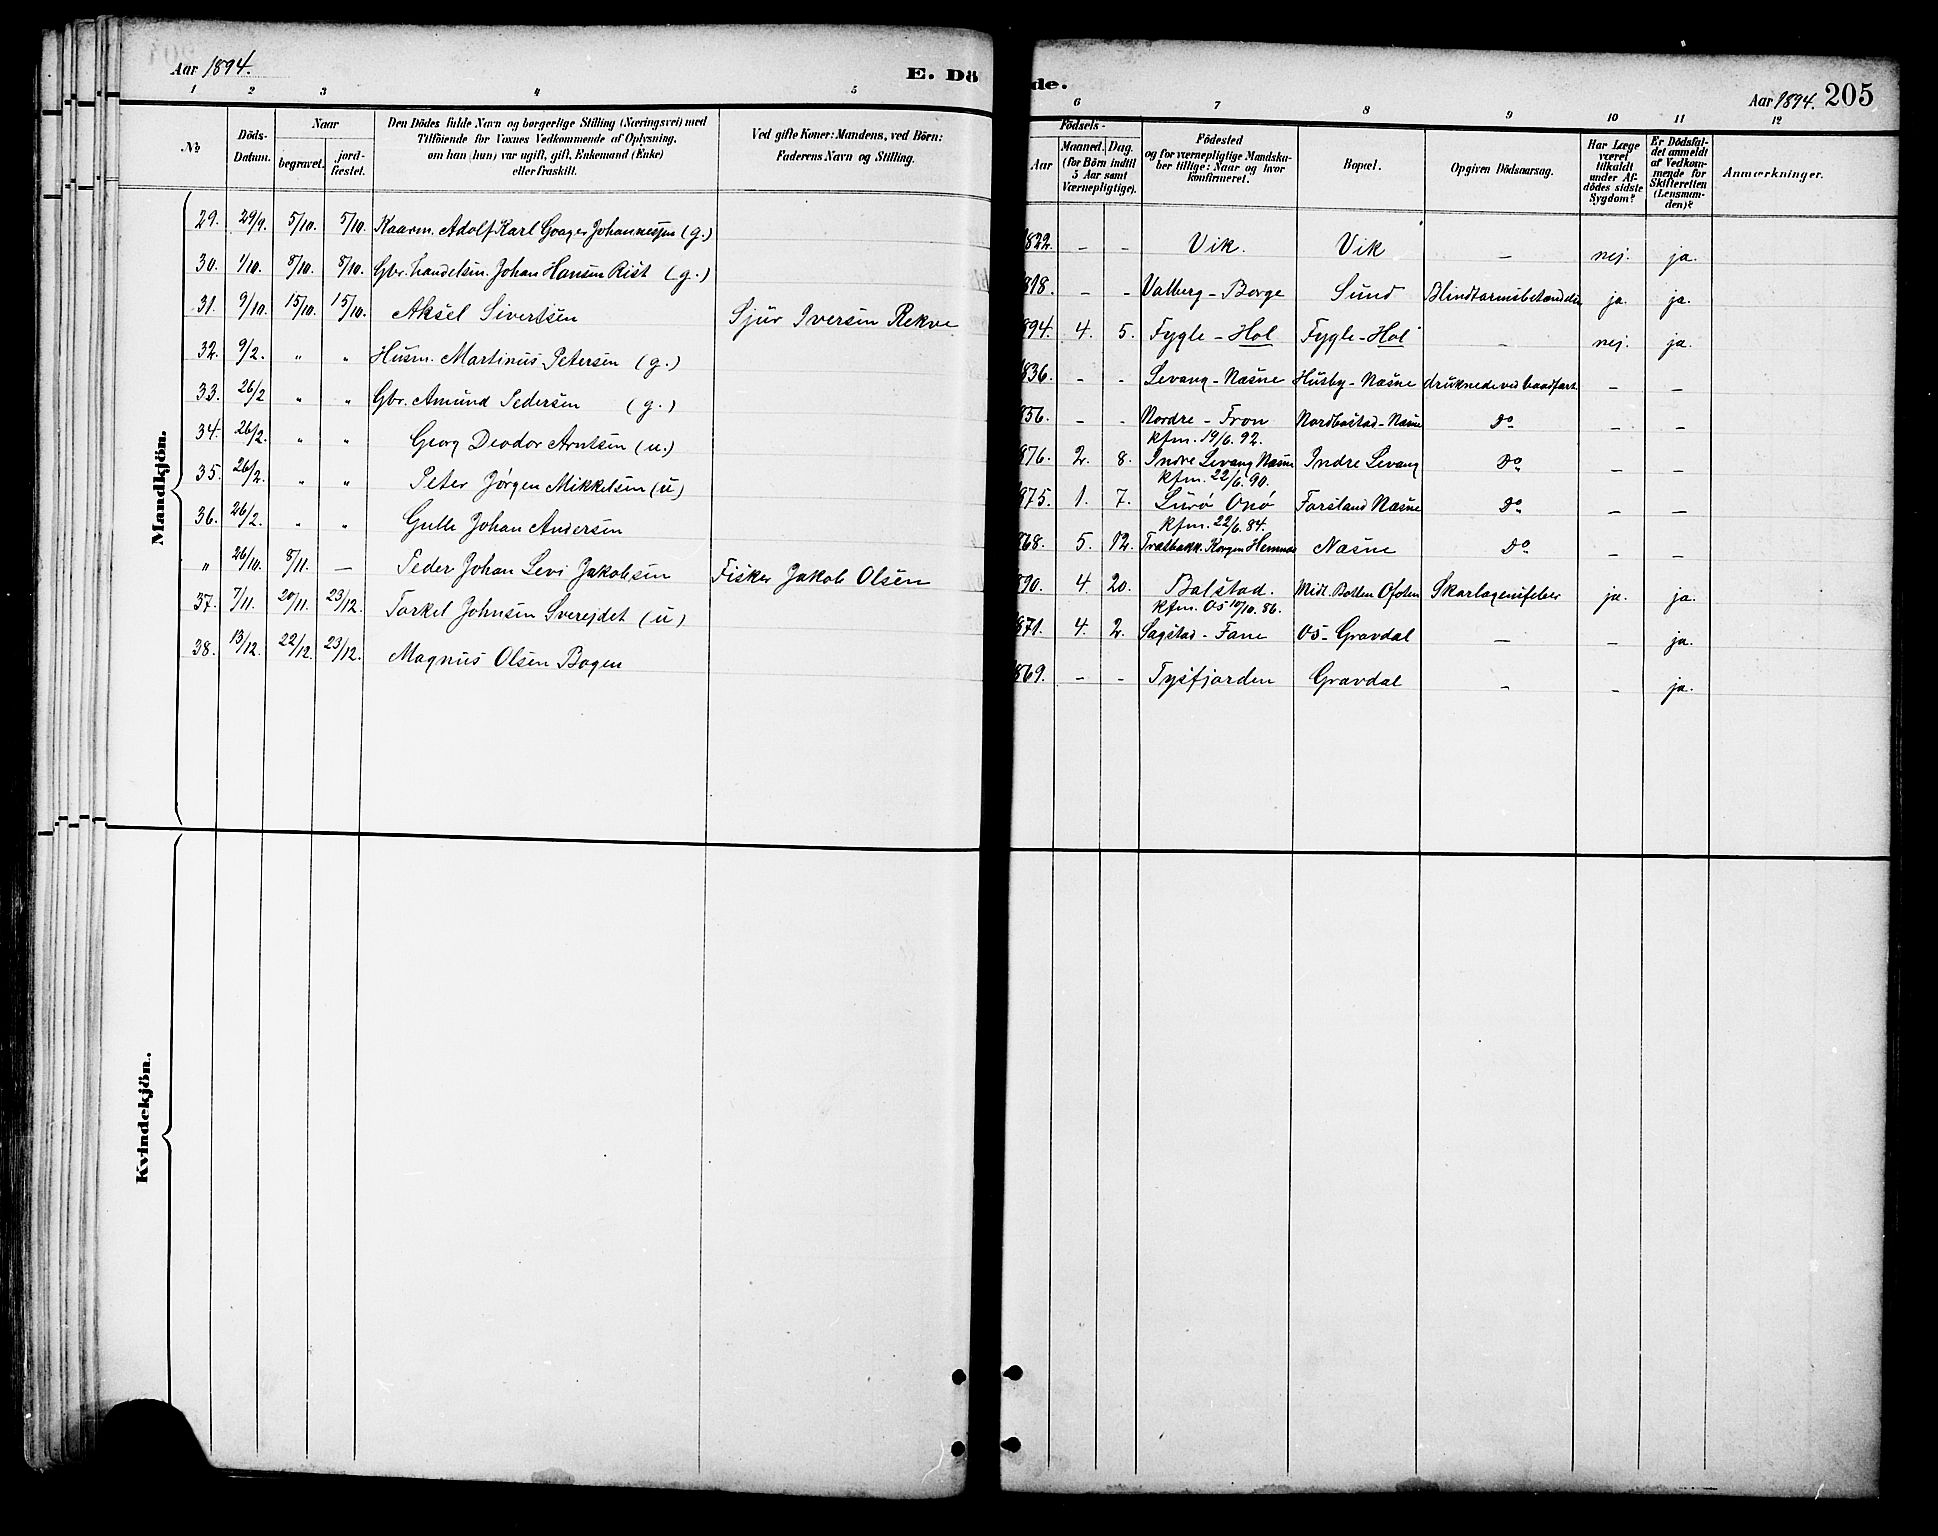 Aar 1894.
E. Dö
de.
Aar 1894. 205
1 2 3 4 5
6 7 8 9 10 11 12
No
Döds-
Datum.
Naar
begravet.
jord-
fæstet.
Den Dödes fulde Navn og borgerlige Stilling (Næringsvei) med
Tilföiende for Voxnes Vedkommende af Oplysning,
om han (hun) var ugift, gift, Enkemand (Enke)
eller fraskilt.
Ved gifte Koner: Mandens, ved Börn:
Faderens Navn og Stilling.
Födsels-
Aar
Maaned. Dag.
(for Börn indtil
5 Aar samt
Værnepligtige).
Födested
og for værnepligtige Mandska-
ber tillige: Naar og hvor
konfirmeret.
Bopæl.
Opgiven Dödsaarsag.
Har Læge
været
tilkaldt
under Af-
dödes sidste
Sygdom?
Er Dödsfal-
det anmeldt
af Vedkom-
mende for
Skifteretten
(Lensman-
den)?
Anmærkninger.
Mandkjön.
29. 29/9. 5/10. 5/10. Kaarm. Adolf Karl Johannessen (g.)
30. 1/10. 8/10. 8/10. Gbr. handelsm. Johan Hansen Rist (g.)
31. 9/10. 15/10. 15/10. Aksel Sivertsen Sjur Iversen Rekve
32. 9/2. " " Husm. Martinus Petersen (g.)
33. 26/2 " " Gbr. Amund Pedersen (g.)
34. 26/2. " " Georg Deodor Arntsen (u.)
35. 26/2. " " Peter Jørgen Mikkelsen (u)
36. 26/2. " " Johan Andersen
" 26/10. 8/11. — Peder Johan Levi Jakobsen Fisker Jakob Olsen
37. 7/11. 20/11. 23/12. Torkel Johnsen Sverejdet (u)
38. 13/12. 22/12. 23/12. Magnus Olsen Bogen
1822. – – Vik. Vik – nej. ja.
1818. – – Valberg – Borge Sund ja. ja.
894. 4. 5. Fygle – Hol Fygle – Hol – nej. ja.
836. – – Levang – Næsne Husby – Næsne druknede ved baadfart – –
856. – – Nordre – Fron Næsne Do – –
kfm. 19/6. 92.
876. 2. 8. Indre Levang Næsne Indre Levang Do – –
kfm. 22/6. 90.
875. 1. 7. Lurø Onø Forsland Næsne Do – –
kfm. 22/6. 84.
868. 5. 12. Korgen Hemnæs Næsne Do – –
890. 4 20. Balstad. Midt. Botten Ofoten Skarlagensfeber ja. ja.
kfm. Os 10/10. 86.
871. 4. 2. Sagstad – Fane Os – Gravdal – – ja.
869. – – Tysfjorden Gravdal – – ja.
Kvindekjön.